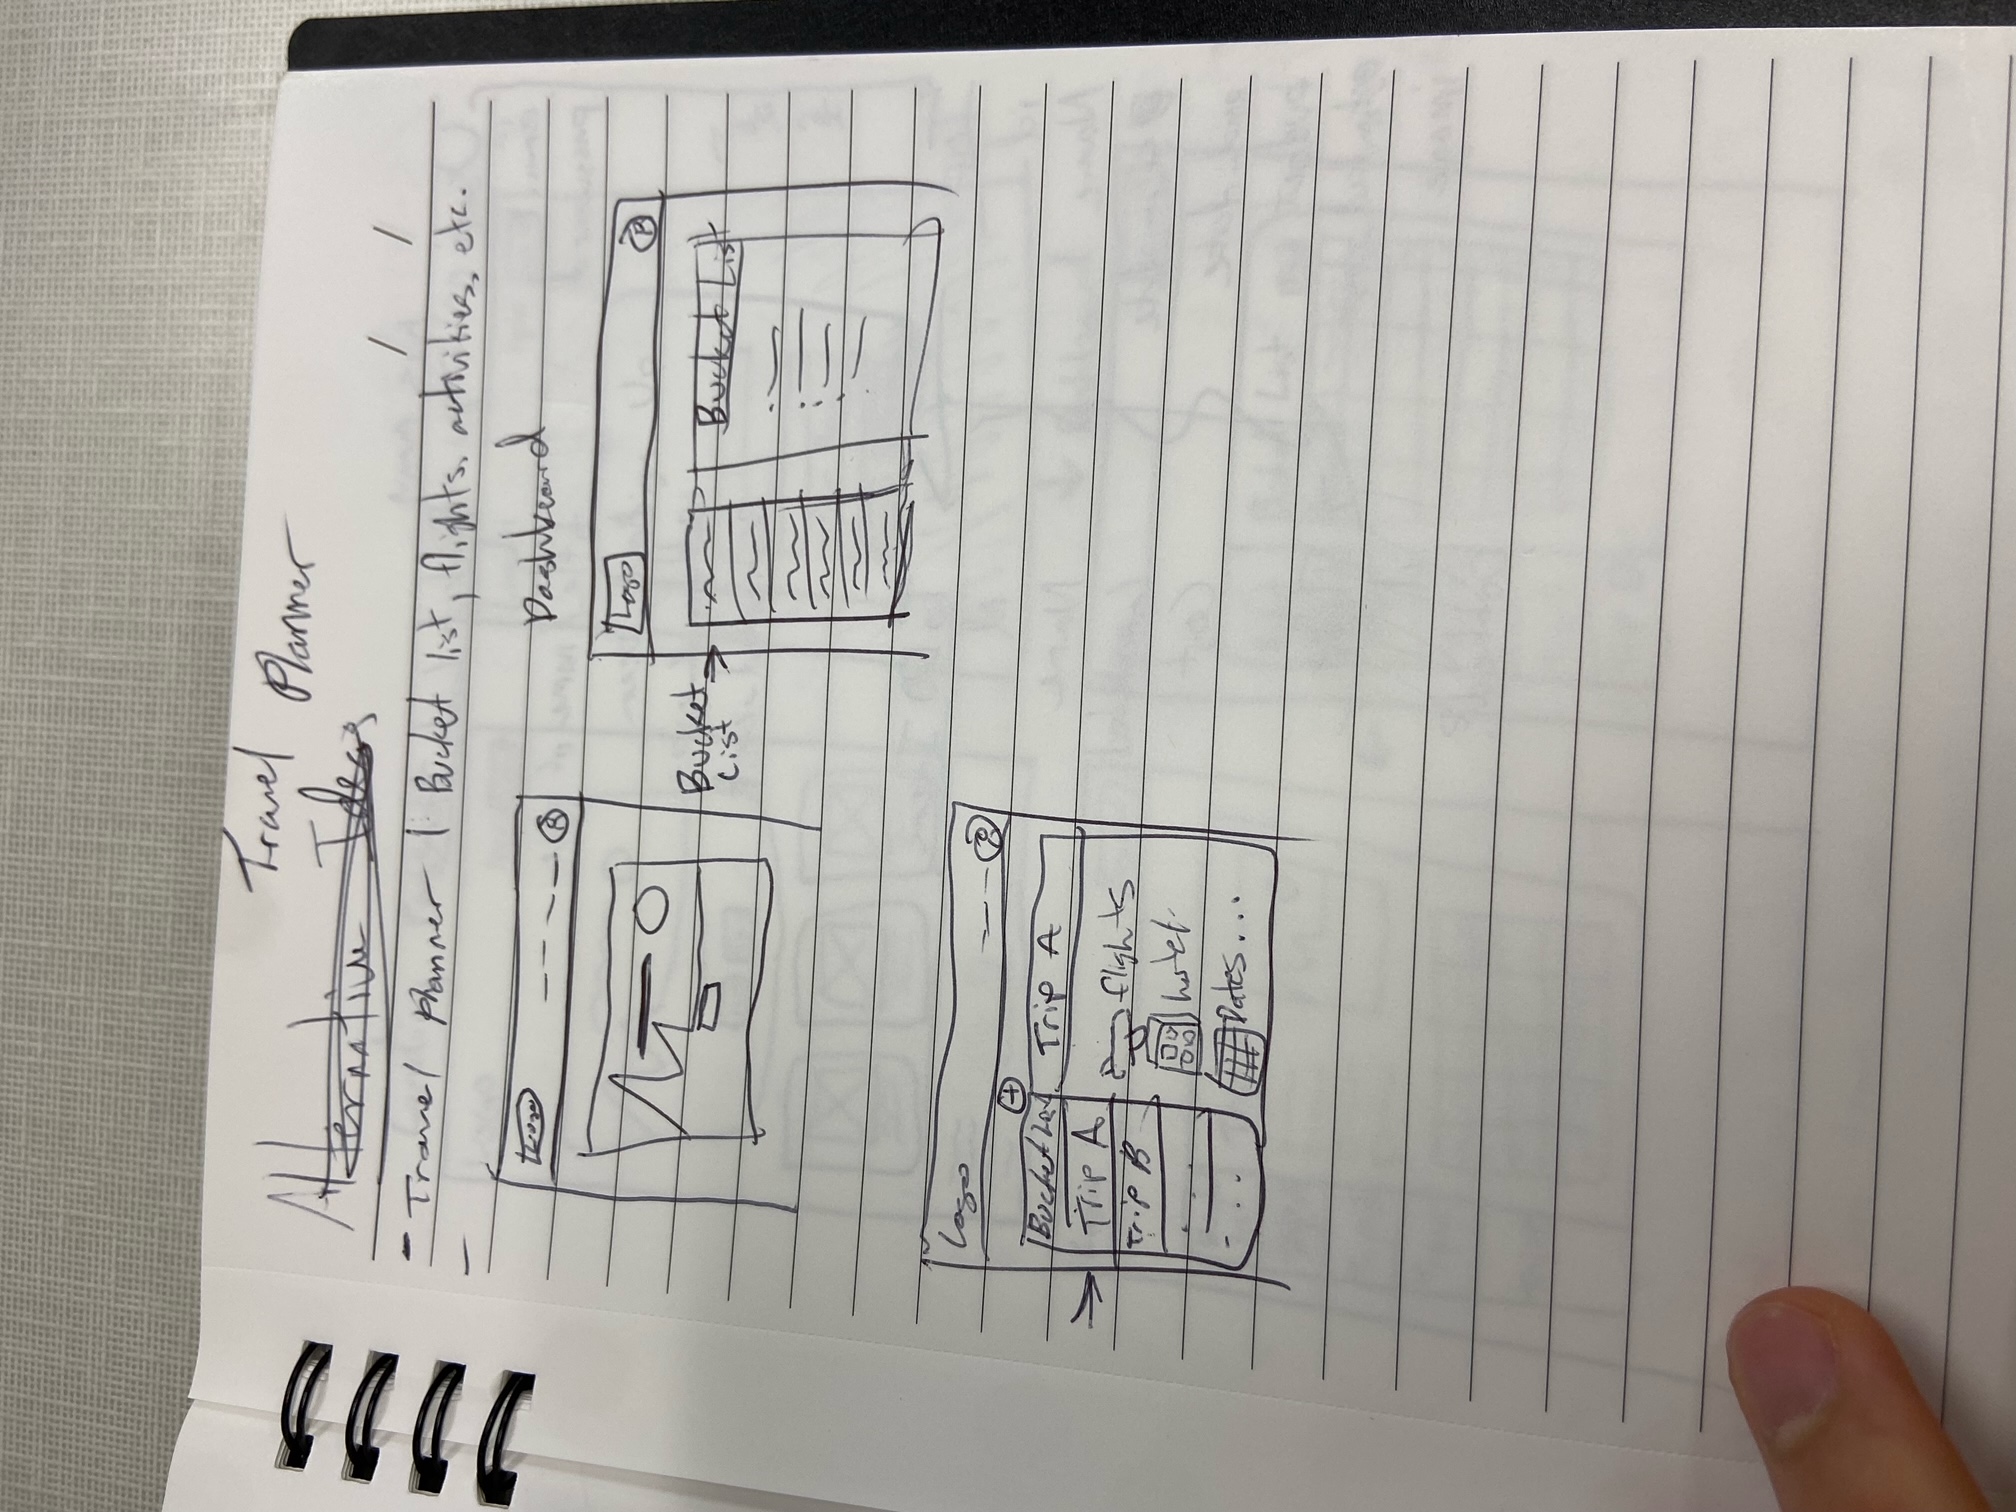 Travel Planner
Alternative Ideas
- Travel Planner | Bucket list, flights, activities, etc.
Logo
Dashboard
Logo
Bucket
List
Bucket List
Logo
Bucket List
Trip A
Trip A
flights
Trip B
hotel
Dates...